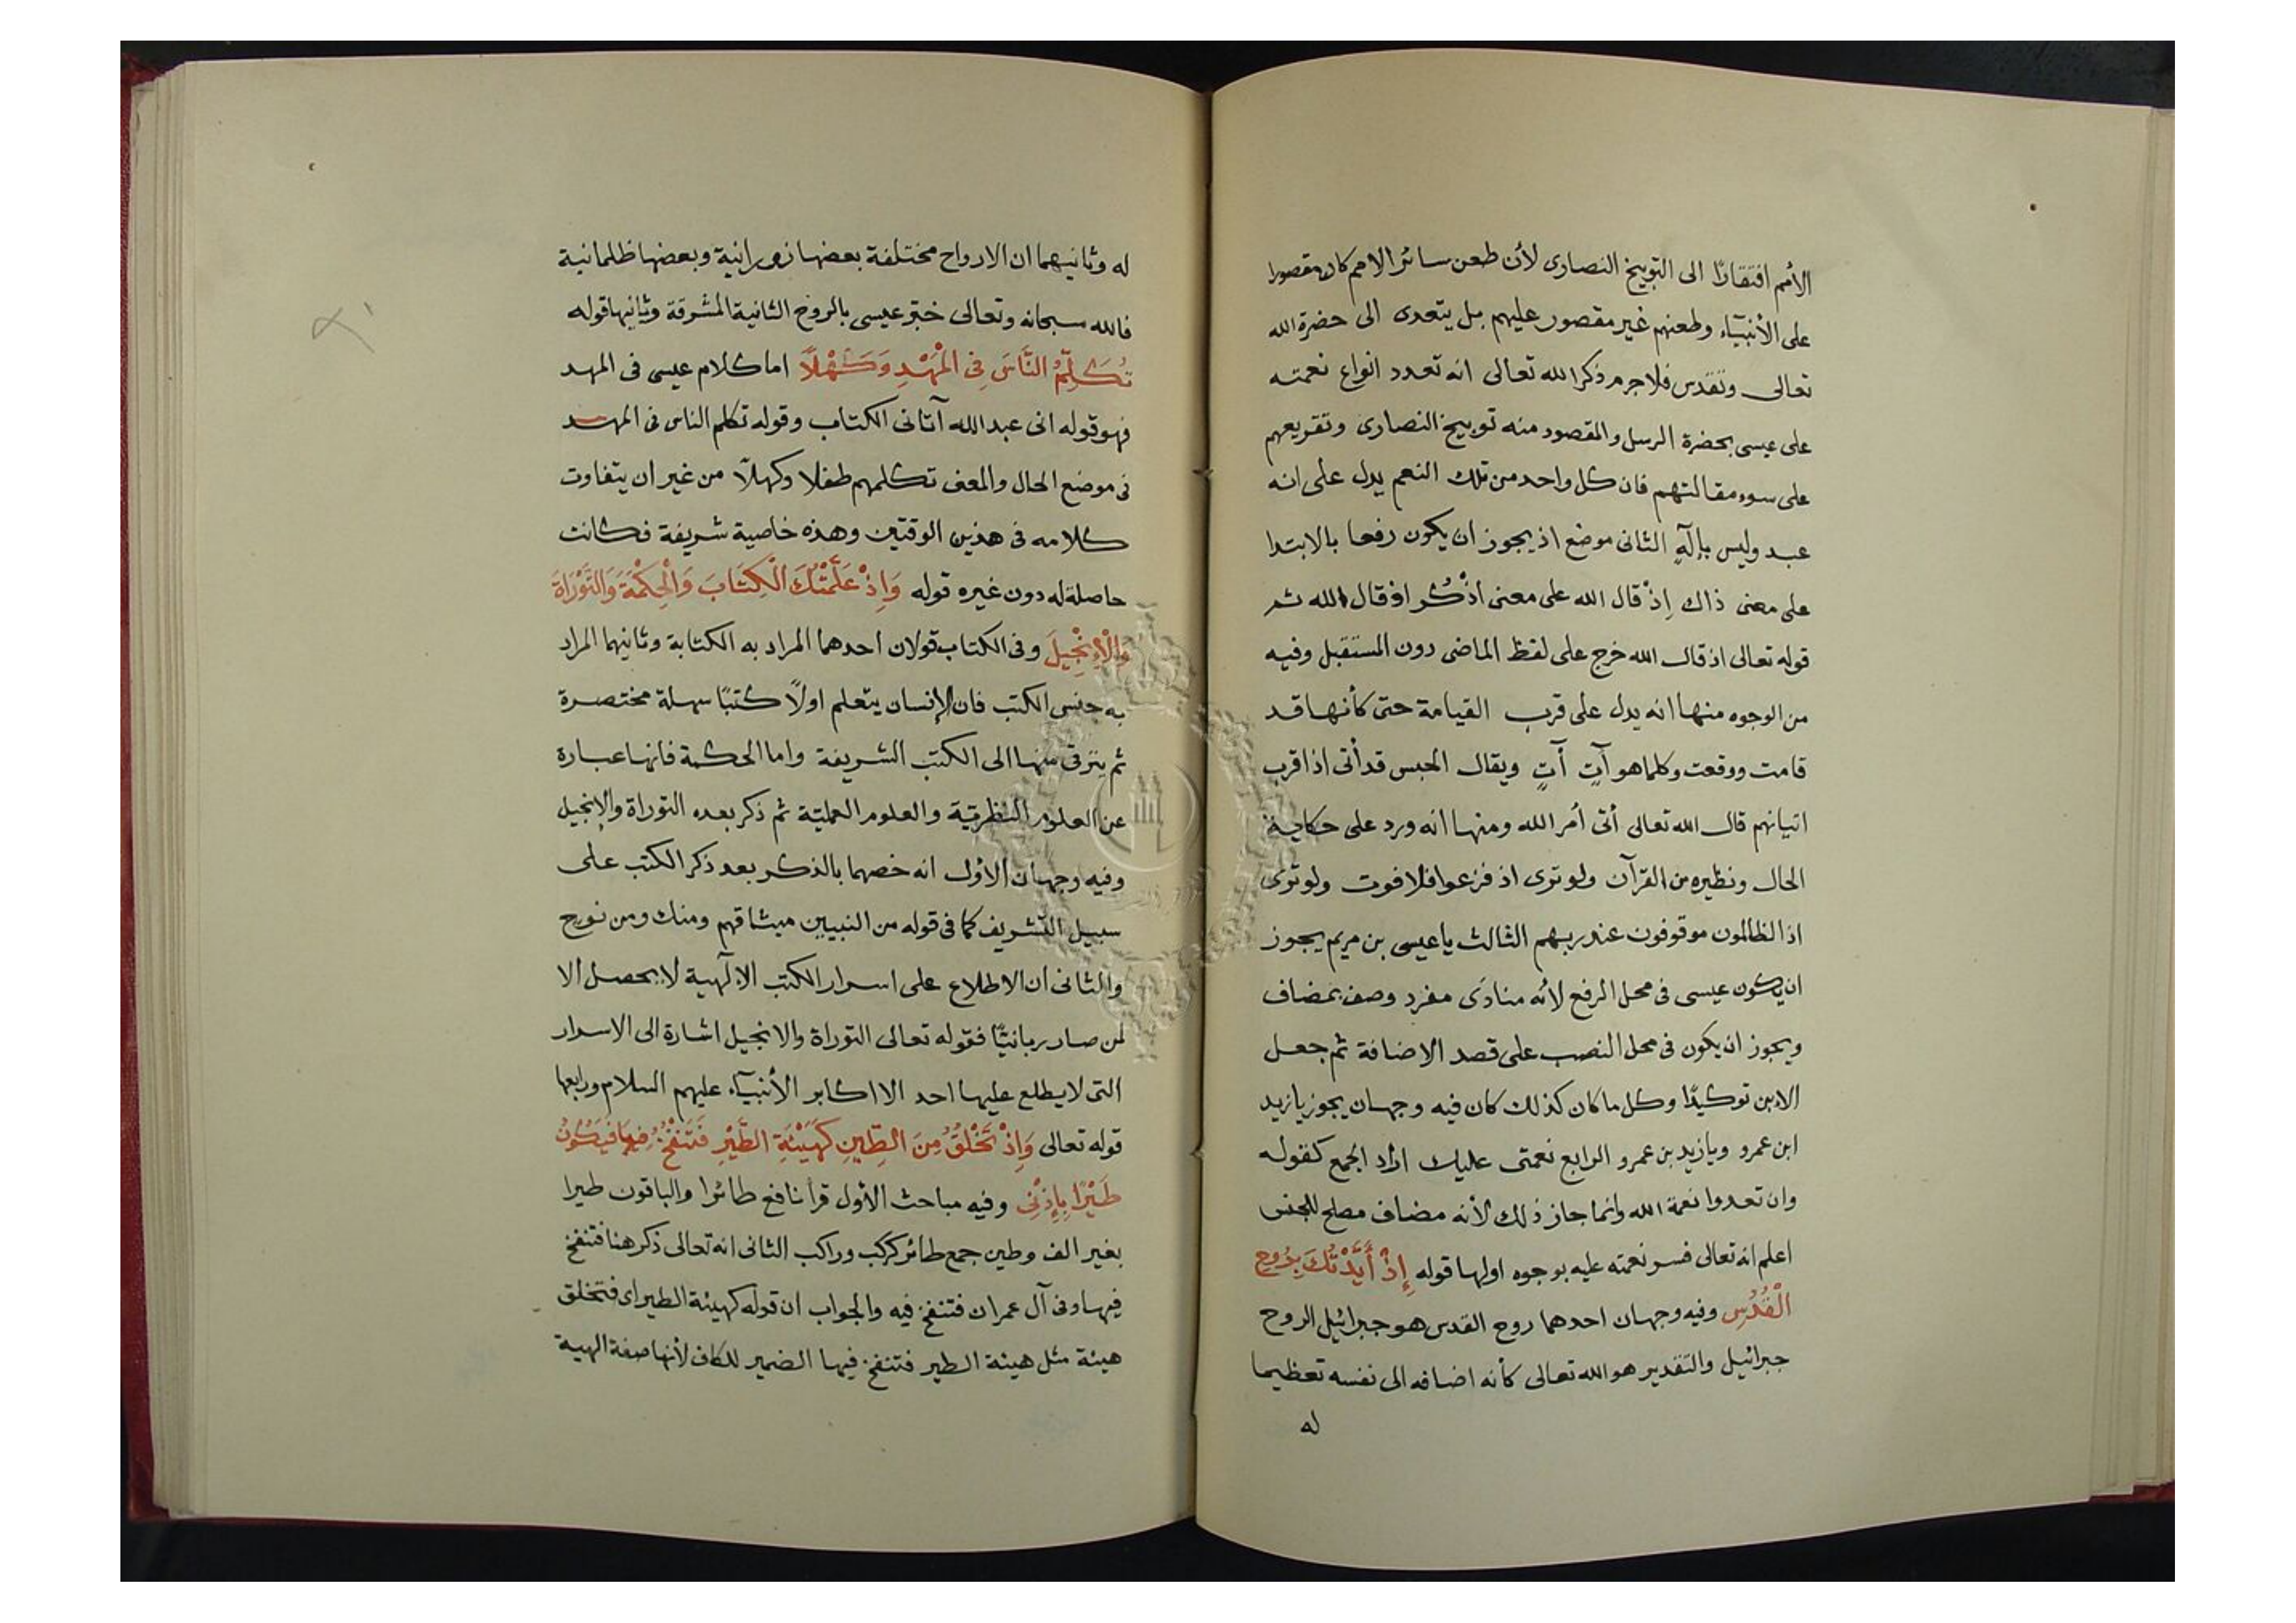 الأمم افتقارًا الى التوبيخ النصارى لأن طعن سائر الامم كان مقصورا
على الأنبيآء وطعنهم غير مقصور عليهم بل يتعدى الى حضرة الله
تعالى وتقدس فلا جرم ذكر الله تعالى انه تعدد انواع نعمته
على عيسى بحضرة الرسل والمقصود منه توبيخ النصارى وتقريعهم
على سوء مقالتهم فان كل واحد من تلك النعم يدل على انه
عبد وليس بإلٓهٍ الثانى موضع اذ يجوز ان يكون رفعا بالابتدا
على معنى ذاك إذْ قال الله على معنى اذْكُر اذ قال الله ثم
قوله تعالى اذ قال الله خرج على لفظ الماضى دون المستقبل وفيه
من الوجوه منها انه يدل على قرب القيامة حتى كأنها قد
قامت ووقعت وكلما هو آتٍ آتٍ ويقال الحبس قد أتى اذا قرب
اتيانهم قال الله تعالى أتى أمر الله ومنها انه ورد على حكاية
الحال ونظيره من القرآن ولو ترى اذ فزعوا فلا فوت ولو ترى
اذ الظالمون موقوفون عند ربهم الثالث يا عيسى بن مريم يجوز
ان يكون عيسى فى محل الرفع لأنه منادًى مفرد وصف بمضاف
ويجوز ان يكون فى محل النصب على قصد الاضافة ثم جعل
الابن توكيدًا وكل ما كان كذلك كان فيه وجهان يجوز يا زيد
ابن عمرو ويا زيد بن عمرو الرابع نعمتى عليك اراد الجمع كقوله
وان تعدوا نعمة الله وانما جاز ذلك لأنه مضاف مصلح للجنس
اعلم انه تعالى فسر نعمته عليه بوجوه اولها قوله إِذْ أَيَّدْتُكَ بِرُوحِ
الْقُدُسِ وفيه وجهان احدهما روح القدس هو جبرائيل الروح
جبرائيل والتقدير هو الله تعالى كأنه اضافه الى نفسه تعظيما
له
له وثانيهما ان الارواح مختلفة بعضها نورانية وبعضها ظلمانية
فالله سبحانه وتعالى خبّر عيسى بالروح الثانية المشرقة وثانيها قوله
تُكَلِّمُ النَّاسَ فِى الْمَهْدِ وَكَهْلًا اما كلام عيسى فى المهد
فهو قوله انى عبد الله آتانى الكتاب وقوله تكلم الناس فى المهد
فى موضع الحال والمعنى تكلمهم طفلا وكهلًا من غير ان يتفاوت
كلامه فى هذين الوقتين وهذه خاصية شريفة فكانت
حاصلة له دون غيره قوله وَإِذْ عَلَّمْتُكَ الْكِتَابَ وَالْحِكْمَةَ وَالتَّوْرَاةَ
وَالْإِنْجِيلَ وفى الكتاب قولان احدهما المراد به الكتابة وثانيهما المراد
به جنس الكتب فان الإنسان يتعلم اولًا كتبًا سهلة مختصرة
ثم يترقى منها الى الكتب الشريفة واما الحكمة فانها عبارة
عن العلوم النظرية والعلوم العملية ثم ذكر بعده التوراة والإنجيل
وفيه وجهان الأول انه خصهما بالذكر بعد ذكر الكتب على
سبيل التشريف كما فى قوله من النبيين ميثاقهم ومنك ومن نوح
والثانى ان الاطلاع على اسرار الكتب الإلٓهية لا يحصل الا
لمن صار ربانيًّا فقوله تعالى التوراة والانجيل اشارة الى الاسرار
التى لا يطلع عليها احد الا اكابر الأنبيآء عليهم السلام ورابعها
قوله تعالى وَإِذْ تَخْلُقُ مِنَ الطِّينِ كَهَيْئَةِ الطَّيْرِ فَتَنْفُخُ فِيهَا فَيَكُونُ
طَيْرًا بِإِذْنِى وفيه مباحث الأول قرأ نافع طائرا والباقون طيرا
بغير الف وطين جمع طائر كركب وراكب الثانى انه تعالى ذكر هنا فتنفخ
فيها وفى آل عمران فتنفخ فيه والجواب ان قوله كهيئة الطير اى فتخلق
هيئة مثل هيئة الطير فتنفخ فيها الضمير للكاف لأنها صفة الهيبة